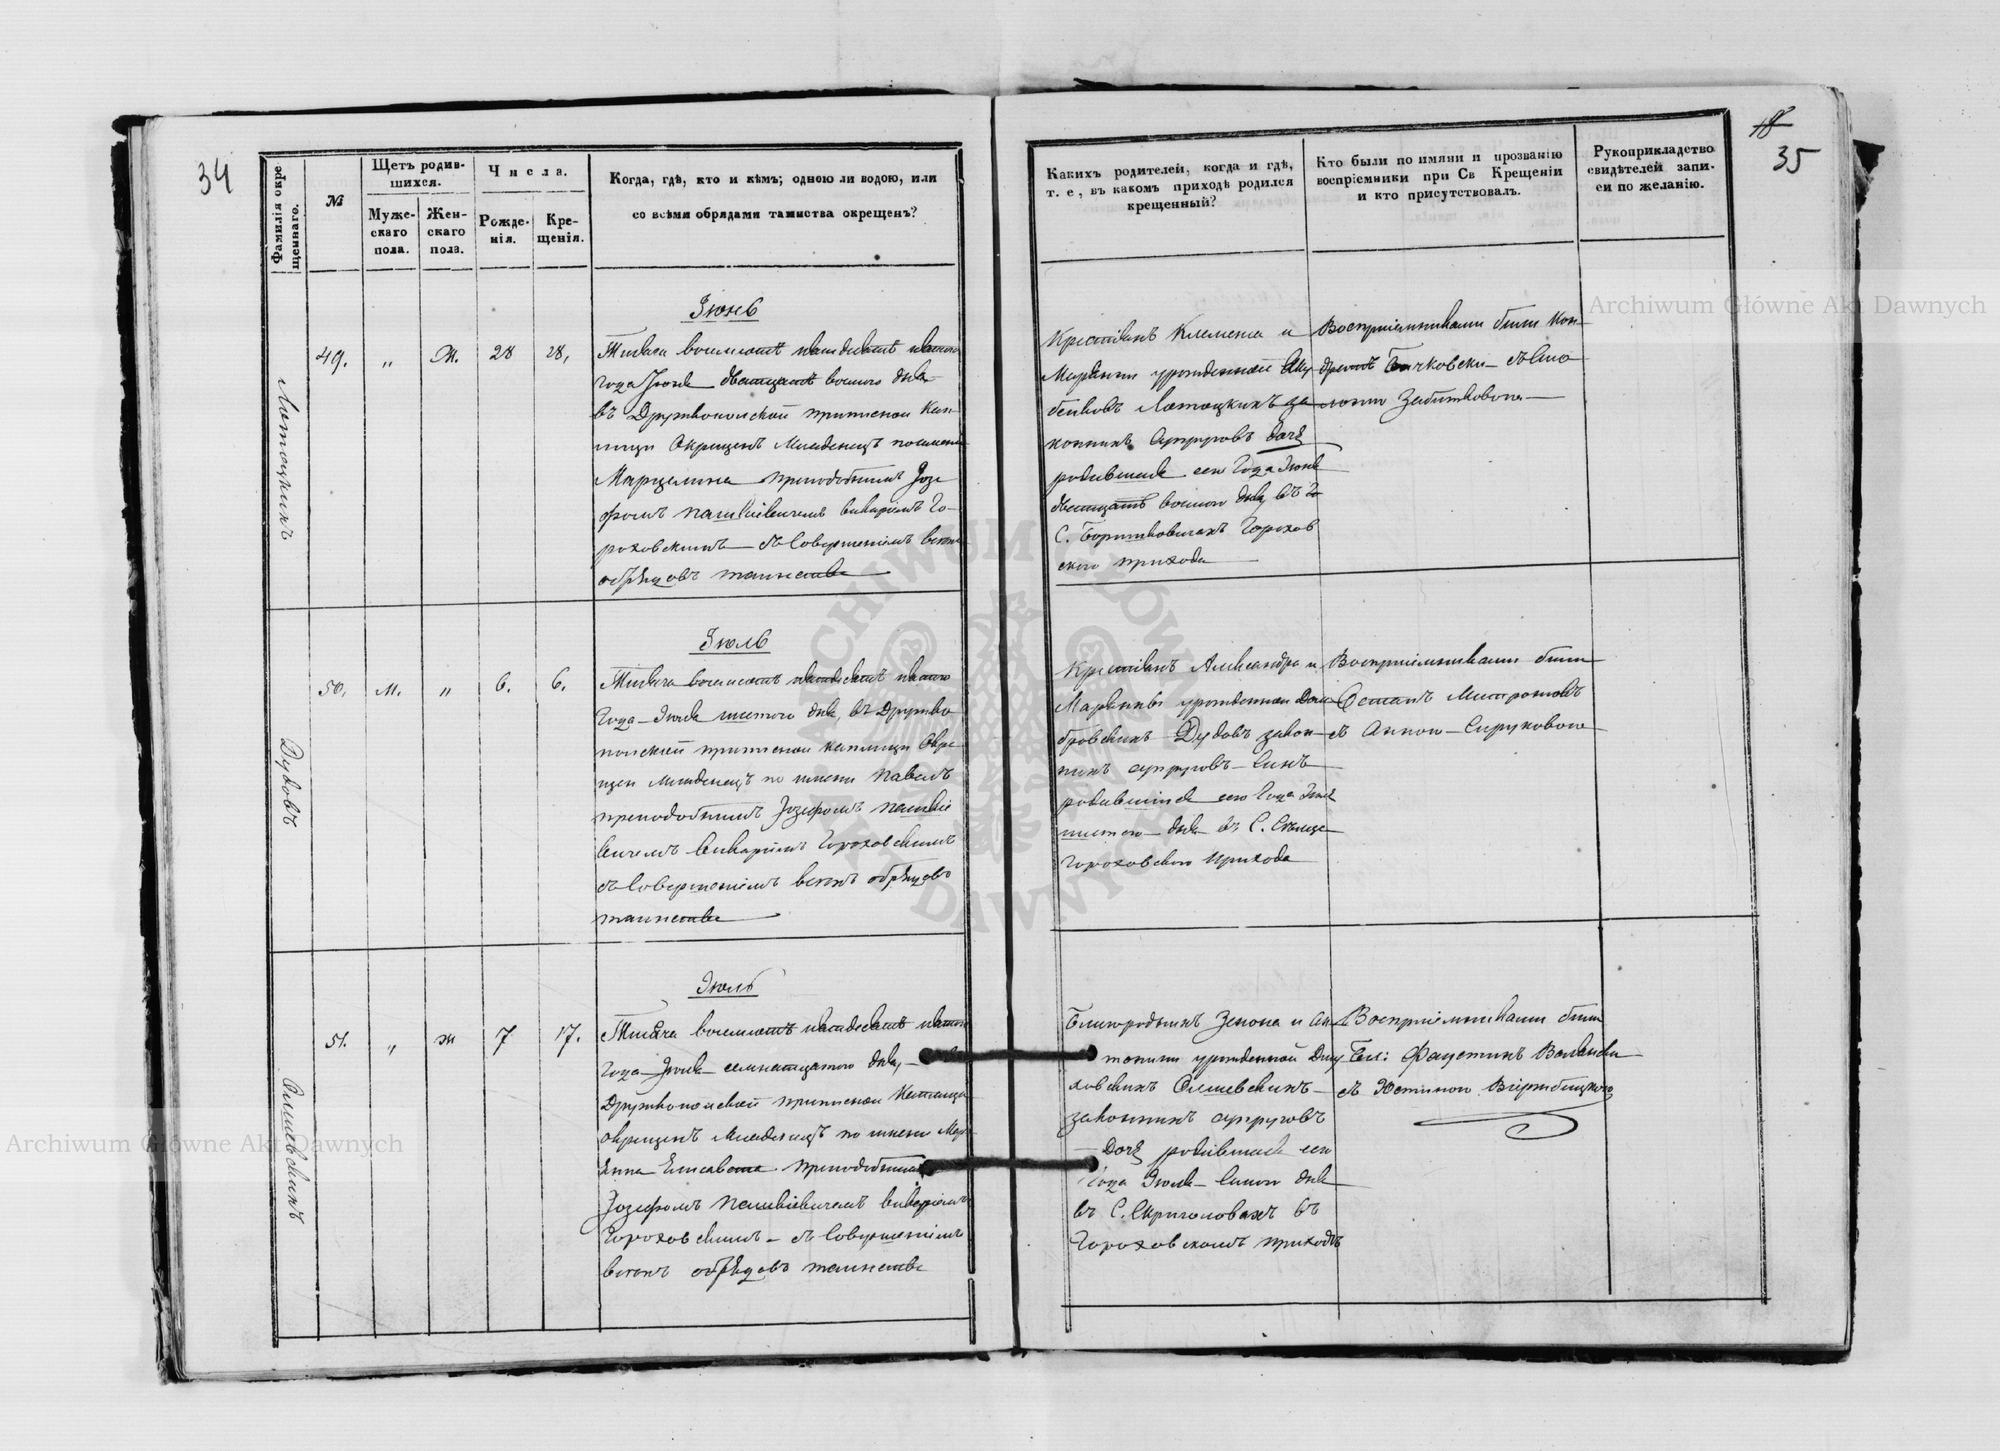 34
Фамилія окре-
щеннаго.
№
Щетъ родив-
шихся.
Муже-
скаго
пола.
Жен-
скаго
пола.
Числа.
Рожде-
нія.
Кре-
щенія.
Когда, гдѣ, кто и кѣмъ; одною ли водою, или
со всѣми обрядами таинства окрещенъ?
Лотоцкихъ
49.
„
Ж.
28
28,
Іюнь
Тысяча восемсотъ пятдесятъ пятого
года Іюня двятцать восмого дня
въ Дружкопольской приписной кап-
лици Окрещенъ Младенецъ по имени
Марцелина преподобнымъ Іозе
фомъ Пашкѣвичемъ викаріемъ Го-
роховскимъ съ Совершеніемъ всѣхъ
обрядовъ таинства
Дудовъ
50.
М.
„
6.
6.
Іюль
Тысяча восемсотъ пятдесятъ пятого
года Іюля шестого дня, въ Дружко
польской приписной каплици Окре-
щен Младенецъ по имени Павелъ
преподобнымъ Іозефомъ Пашкѣ
вичемъ викаріемъ Гороховскимъ
съ Совершеніемъ всѣхъ обрядовъ
таинства
Олишевскихъ
51.
„
ж
7
17.
Іюль
Тысяча восемсотъ пятдесятъ пятого
года Іюля семнатцатого дня,
Дружкопольской приписной Каплици
окрещенъ Младенецъ по имени Марі
янна Елисавета преподобнымъ
Іозефомъ Пашкѣвичемъ викаріемъ
Гороховскимъ съ Совершеніемъ
всѣхъ обрядовъ таинства
18
35
Какихъ родителей, когда и гдѣ,
т. е, въ какомъ приходѣ родился
крещенный?
Кто были по имяни и прозванію
воспріемники при Св Крещеніи
и кто присутствовалъ.
Рукоприкладство
свидѣтелей запи-
си по желанію.
Крестьянъ Клеменса и
Маріянны урожденной
Лотоцкихъ за
конныхъ супруговъ дочь
родившаяся сего года Іюня
двятцать восмого дня, въ
С. Борятиковичахъ Горохов
ского прихода
Воспріемниками были Кон-
Забитковою
Крестьянъ Александра и
Маріянны урожденной Дом
бровскихъ Дудовъ закон-
ныхъ супруговъ Сынъ
родившійся сего года Іюля
шестого дня въ С.
Гороховского Прихода
Воспріемниками были
съ Анною Сируковою
Благородныхъ Зенона и Ан
тонины урожденной
ховскихъ Олишевскихъ
законныхъ супруговъ
Дочь родившаяся сего
года Іюля дня
въ С. Скриголовахъ въ
Гороховскомъ приходѣ
Воспріемниками были
Бл: Фаустинъ
съ Юстиною Вержбицкою
Archiwum Główne Akt Dawnych
Archiwum Główne Akt Dawnych
ARCHIWUM GŁÓWNE AKT DAWNYCH